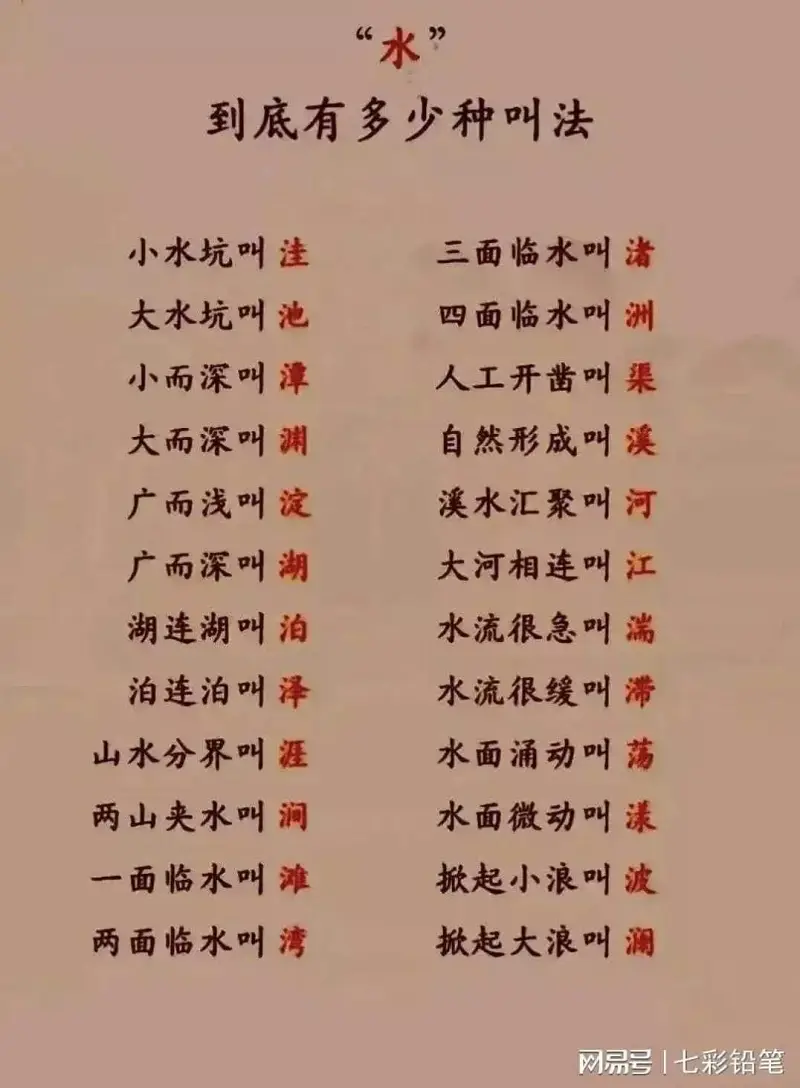 “水”
到底有多少种叫法
小水坑叫洼
大水坑叫池
小而深叫潭
大而深叫渊
广而浅叫淀
广而深叫湖
湖连湖叫泊
泊连泊叫泽
山水分界叫涯
两山夹水叫涧
一面临水叫滩
两面临水叫湾
三面临水叫渚
四面临水叫洲
人工开凿叫渠
自然形成叫溪
溪水汇聚叫河
大河相连叫江
水流很急叫湍
水流很缓叫滞
水面涌动叫荡
水面微动叫漾
掀起小浪叫波
掀起大浪叫澜
网易号 | 七彩铅笔